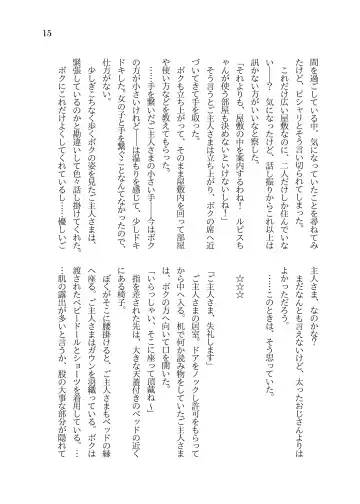 15
間を過ごしている中、気になっていたことを尋ねてみ
たけど、ピシャリとそう言い切られてしまった。
これだけ広い屋敷なのに、二人だけしか住んでいな
い――？　気になったけど、話し振りからこれ以上は
訊かない方がいいなと察した。
「それよりも、屋敷の中を案内するわね！　ルビスち
ゃんが使う部屋も決めないといけないしね！」
そう言うとご主人さまは立ち上がり、ボクの席へ近
づいてきて手を取った。
ボクも立ち上がって、そのまま屋敷内を回って部屋
や使い方などを教えてもらった。
……手を繋いだご主人さまの小さい手――今はボク
の方が小さいけれど――は温もりを感じて、少しドキ
ドキした。女の子と手を繋ぐことなんてなかったので、
仕方がない。
少しぎこちなく歩くボクの姿を見たご主人さまは、
緊張しているのかと勘違いして色々話し掛けてくれた。
ボクにこれだけよくしてくれているし……優しいご
主人さま、なのかな？
まだなんとも言えないけど、太ったおじさんよりは
よかっただろう。
……このときは、そう思っていた。
☆☆☆
「ご主人さま、失礼します」
ご主人さまの居室。ドアをノックし許可をもらって
から中へ入る。机で何か読み物をしていたご主人さま
は、ボクの方へ向いて口を開いた。
「いらっしゃい、そこに座って頂戴ね～」
指を差された先は、大きな天蓋付きのベッドの近く
にある椅子。
ぼくがそこに腰掛けると、ご主人さまもベッドの縁
へ座る。ご主人さまはガウンを羽織っている。ボクは
渡されたベビードールとショーツを着用している。
……肌の露出が多いと言うか、股の大事な部分が隠れて